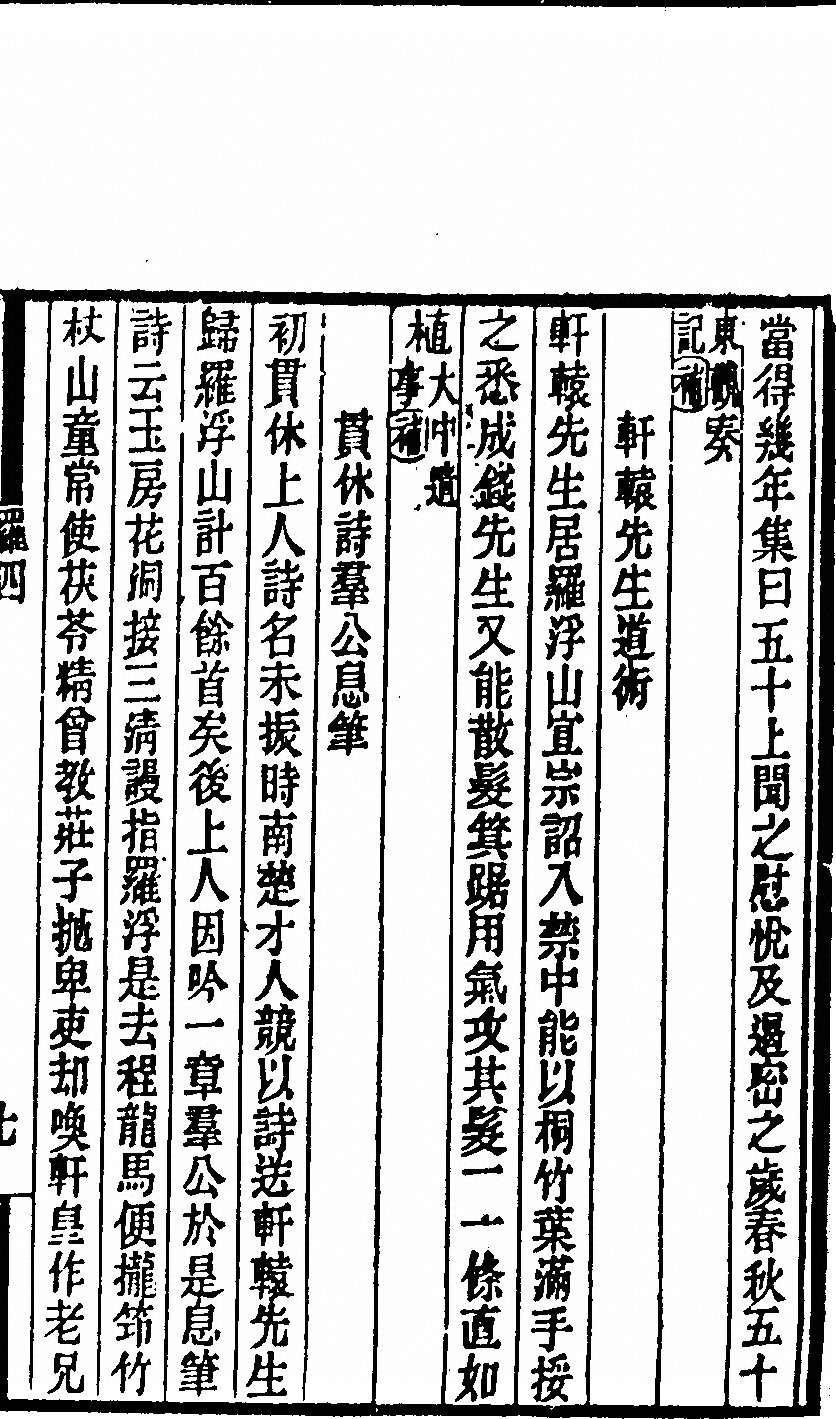 當得幾年集曰五十上聞之慰悅及遏密之歲春秋五十
東觀奏
記補
軒轅先生道術
軒轅先生居羅浮山宣宗詔入禁中能以桐竹葉滿手挼
之悉成錢先生又能散髮箕踞用氣攻其髮一一條直如
植大中遺
事補
貫休詩羣公息筆
初貫休上人詩名未振時南楚才人競以詩送軒轅先生
歸羅浮山計百餘首矣後上人因吟一章羣公於是息筆
詩云玉房花洞接三清謾指羅浮是去程龍馬便攏筇竹
杖山童常使茯苓精曾教莊子抛卑吏却喚軒皇作老兄
羅四
七